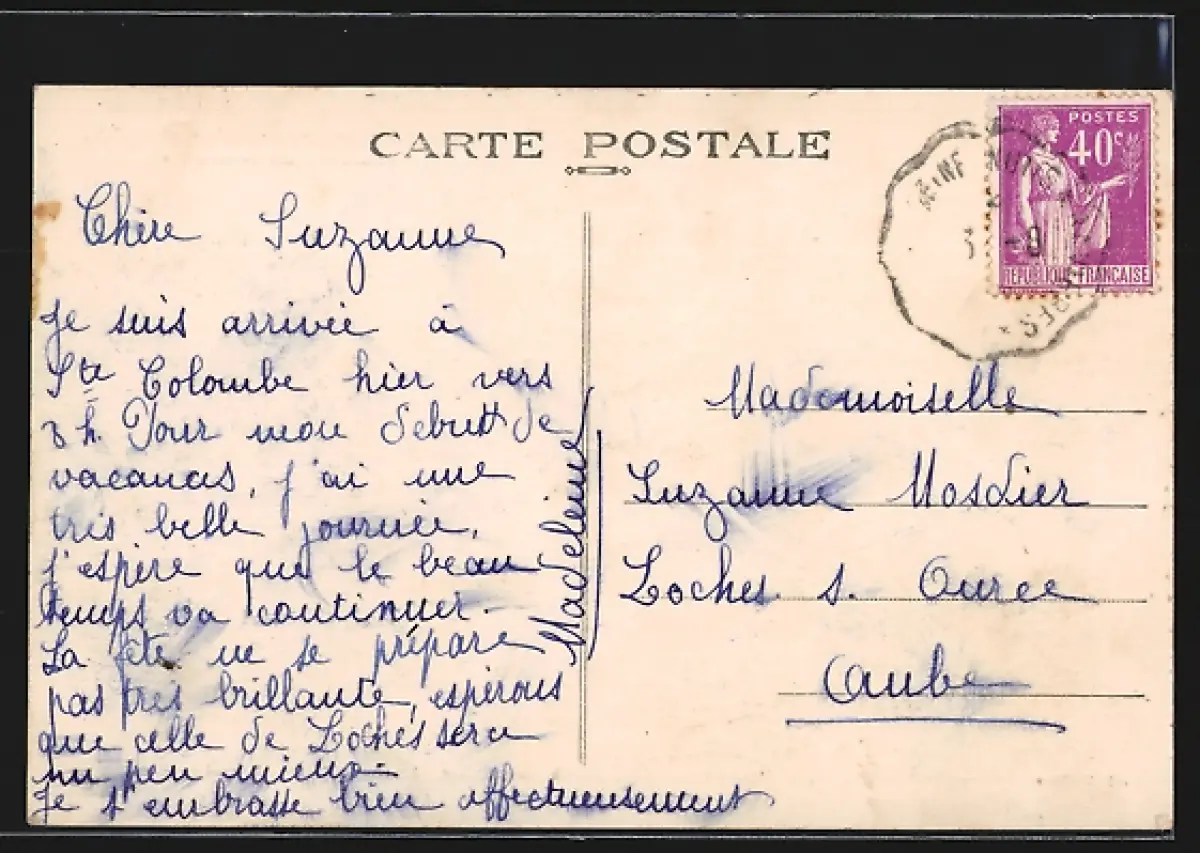 CARTE POSTALE
POSTES
40c
REPUBLIQUE FRANÇAISE
Chère Suzanne
Je suis arrivée à
Ste Colombe hier vers
8 h. Pour mon debutt de
vacances, j'ai une
très belle journée,
j'espère que le beau
temps va continuer.
La fête ne se prépare
pas très brillante, espérons
que celle de Loches sera
un peu mieux.
Je t'embrasse bien affectueusement
Madeleine
Mademoiselle
Suzanne Mosdier
Loches s. Ource
Aube